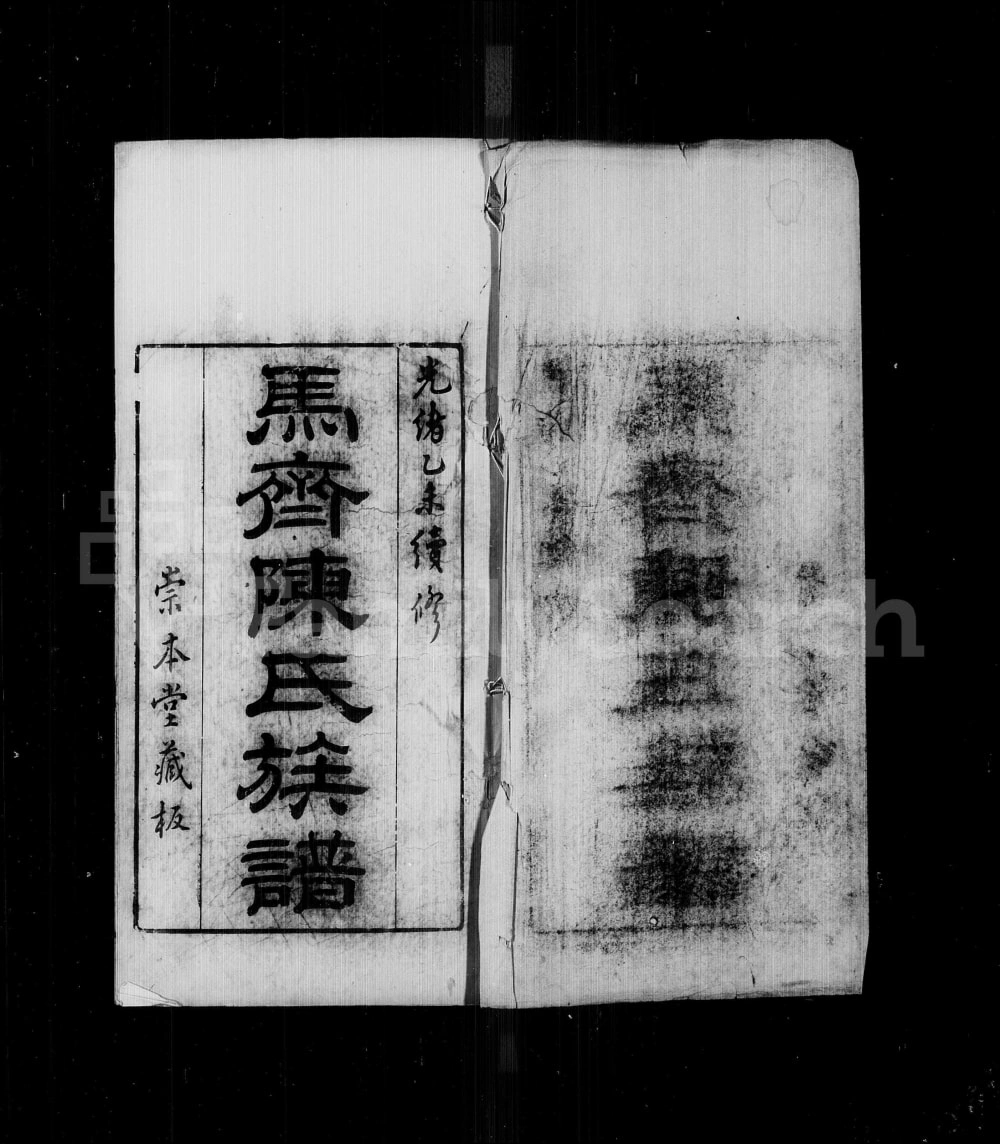 光緒乙未續修
馬齊陳氏族譜
崇本堂藏板